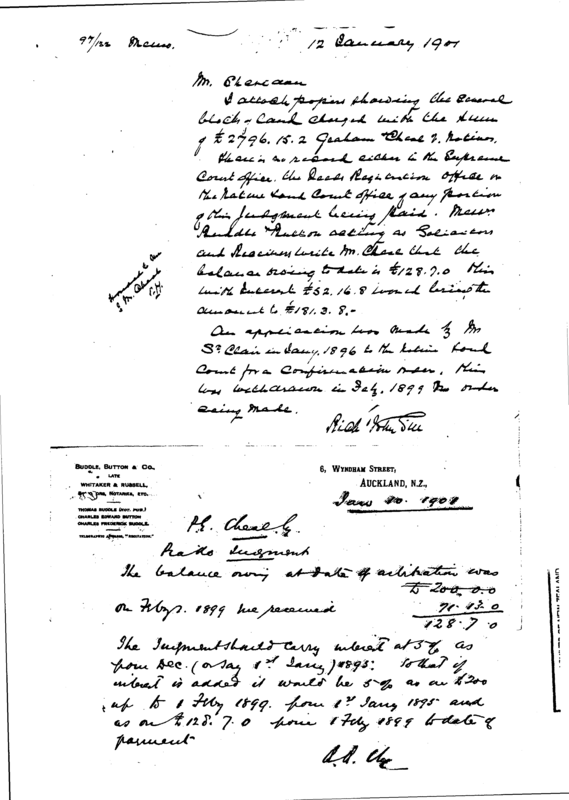 97/122
12 January 1901
Mr. Sheridan
I attach papers showing the several
blocks of land charged with the sum
of £2796.15.2 Graham Cheal & Natives.
There is no record either in the Supreme
Court office, the Deeds Registration office or
the Native Land Court office of any portion
of this Judgment being paid. Messrs
Buddle Button acting as Solicitors
and Receivers write Mr. Cheal that the
balance owing to date is £128.7.0 this
with interest £52.16.8 would bring the
amount to £181.3.8.-
An application was made by Mr
St Clair in Jany. 1896 to the Native Land
Court for a confirmation order, this
was withdrawn in Feby. 1899 no order
being made.
BUDDLE, BUTTON & CO.,
LATE
WHITAKER & RUSSELL,
NOTARIES, ETC.
THOMAS BUDDLE (NOT. PUB.)
CHARLES EDWARD BUTTON
CHARLES FREDERICK BUDDLE.
TELEGRAPHIC ADDRESS,
6, WYNDHAM STREET,
AUCKLAND, N.Z.,
P.E. Cheal
Judgment
The balance owing at date of arbitration was
200.0.0
on Feby. 1899 we received
71.13.0
128.7.0
The Judgment should carry interest at 5% as
from Dec. (or say 1st Jany) 1895. So that if
interest is added it would be 5% as on £200
up to 1 Feby 1899. from 1st Jany 1895 and
as on £128.7.0 from 1 Feby 1899 to date of
payment